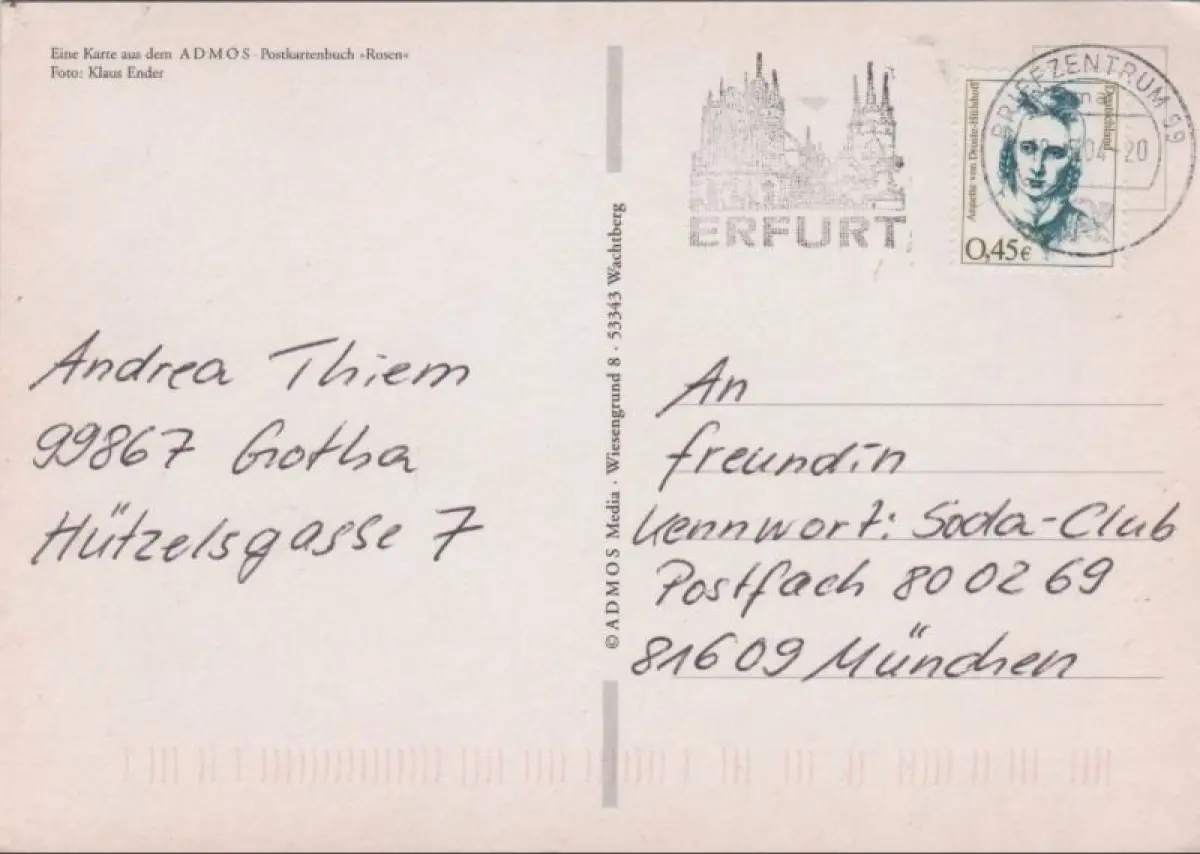 Eine Karte aus dem ADMOS-Postkartenbuch »Rosen«
Foto: Klaus Ender
ERFURT
BRIEFZENTRUM 99
04-20
Deutschland
Annette von Droste-Hülshoff
0,45€
© ADMOS Media · Wiesengrund 8 · 53343 Wachtberg
Andrea Thiem
99867 Gotha
Hützelsgasse 7
An
freundin
Kennwort: Soda-Club
Postfach 80 02 69
81609 München